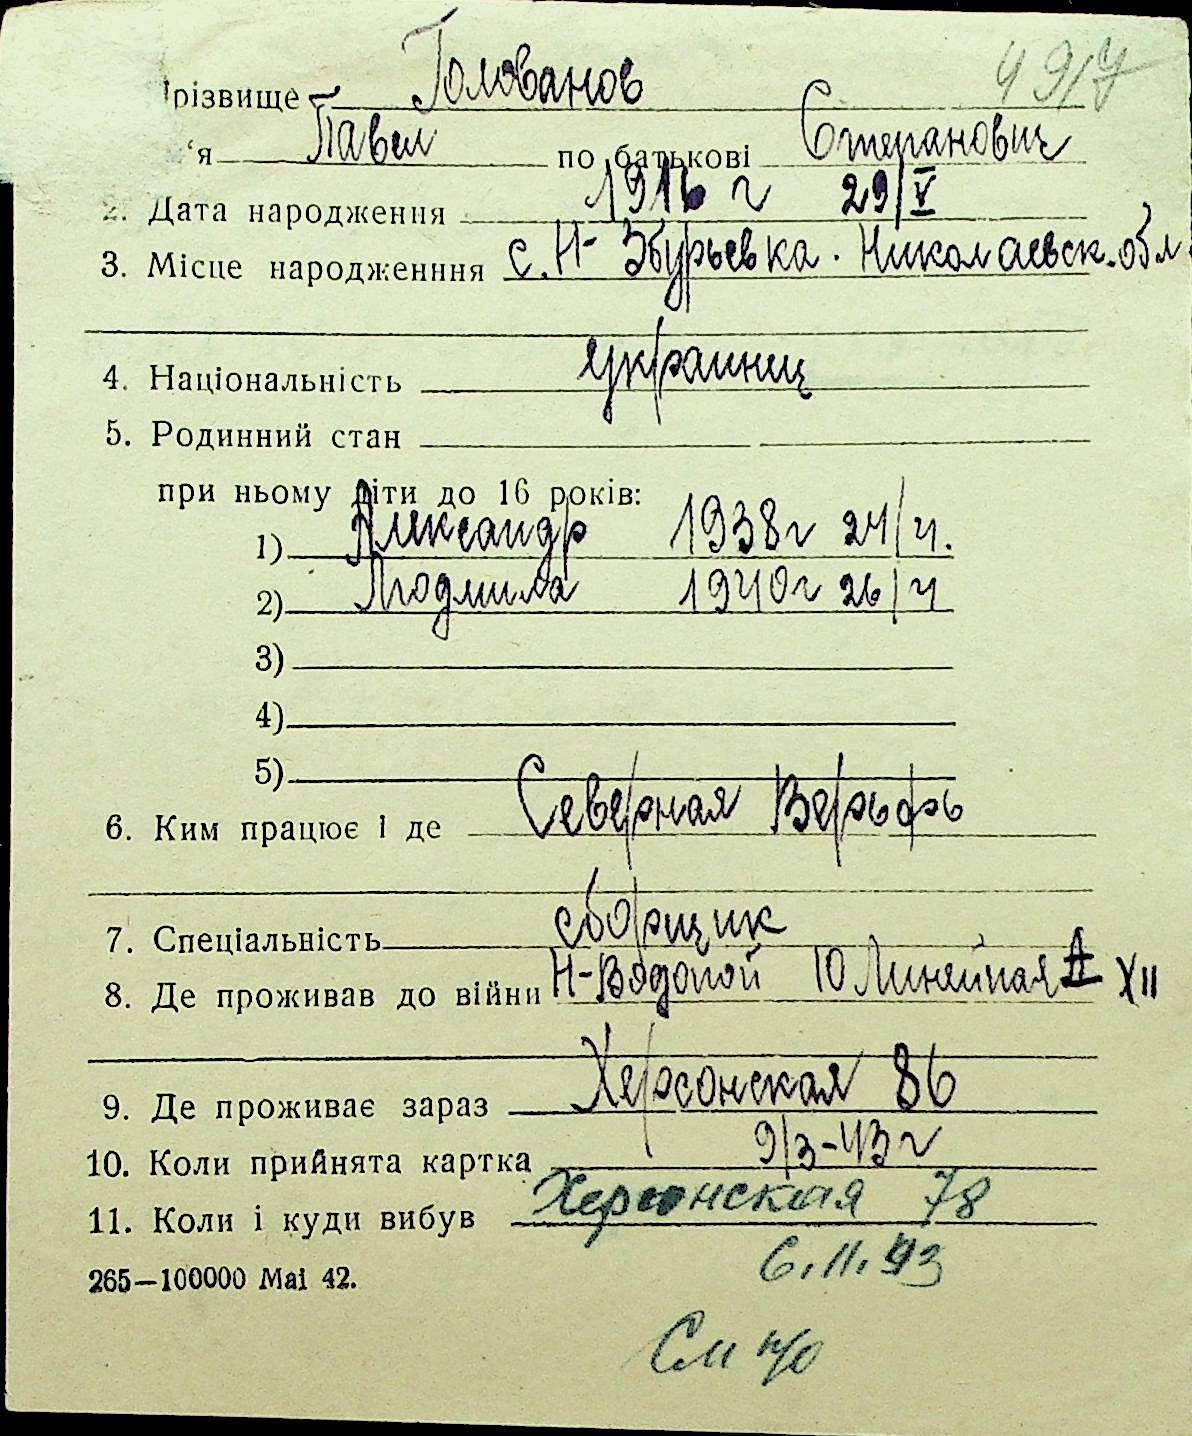 4917
різвище Голованов
'я Павел по батькові Степанович
2. Дата народження 1916 г 29/V
3. Місце народженння с. Н-Збурьевка. Николаевск. обл
4. Національність украинец
5. Родинний стан
при ньому діти до 16 років:
1) Александр 1938г 24/4.
2) Людмила 1940г 26/4
3)
4)
5)
6. Ким працює і де Северная Верьфь
7. Спеціальність сборщик
8. Де проживав до війни Н-Водопой 10 Линейная А XII
9. Де проживає зараз Херсонская 86
10. Коли прийнята картка 9/3-43г
11. Коли і куди вибув Херсонская 78
6.11.43
265—100000 Mai 42.
См